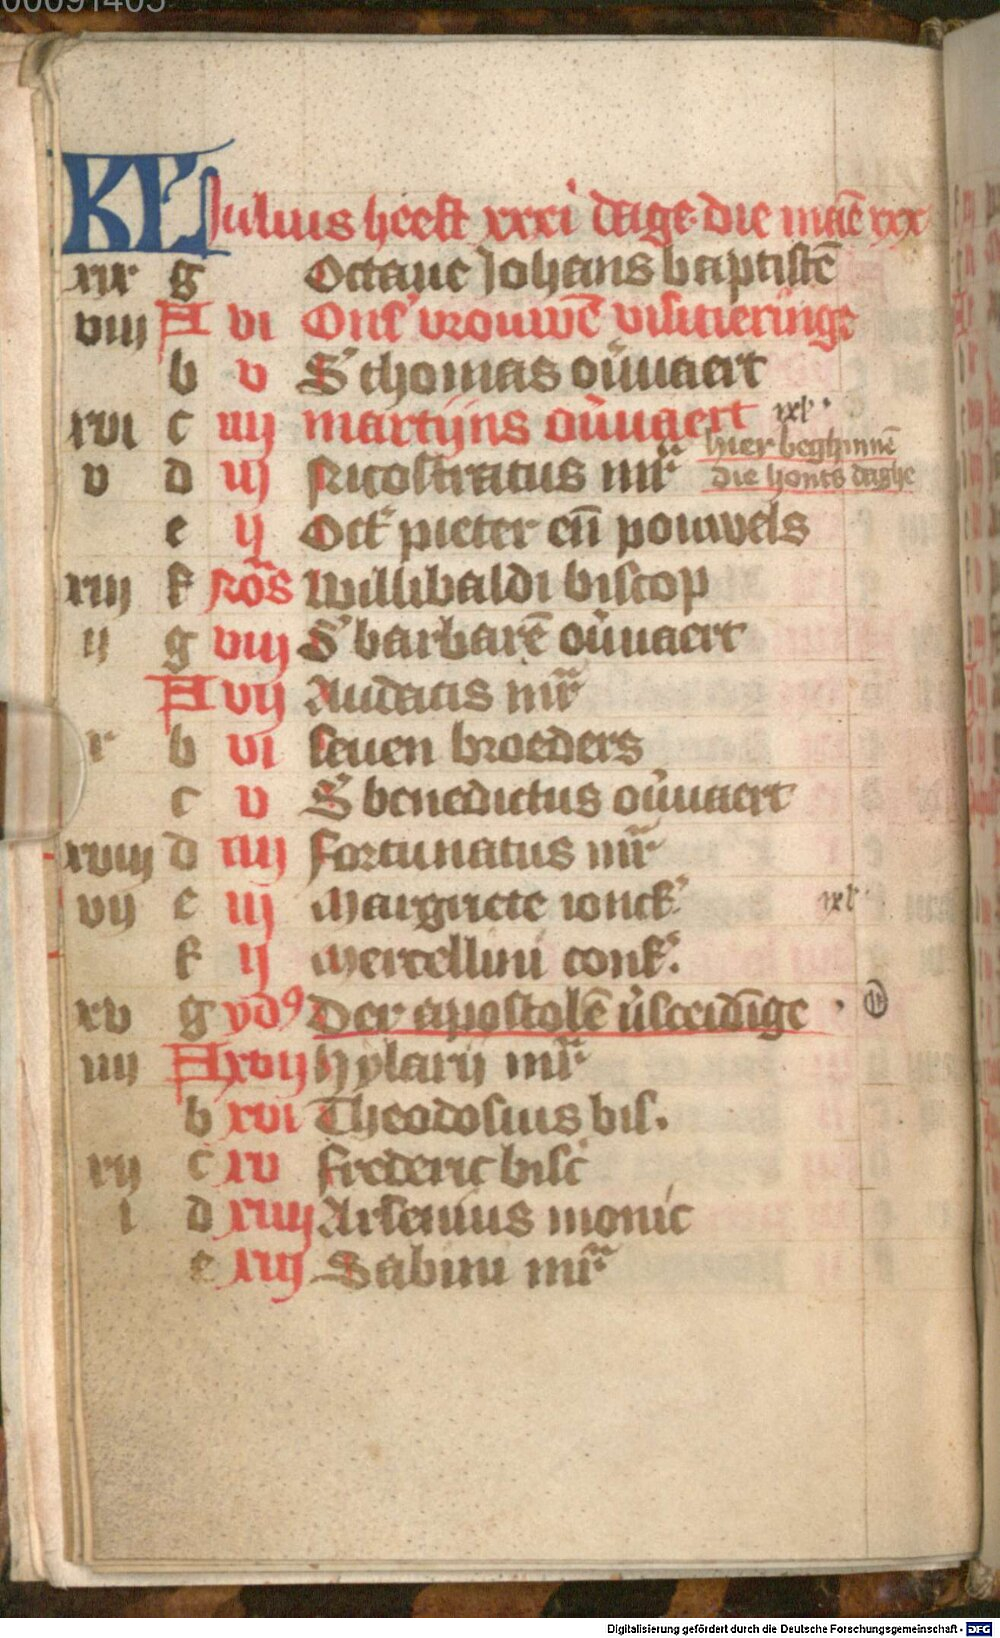 00091405
KL Iulius heeft xxxi dage. die maē xxx
xix g Octaue Johans baptistē
viij A vi Ons' vrouwē visitieringe
b v S' thomas ou̅vaert
xvi c iiij martijns ou̅vaert ixl'
hier beghinnē
v d iij Nicostratus mr̄
die honts daghe
e ij Oct' pieter en̄ pouwels
xiij f Nōs Willibaldi biscop
ij g viij S' barbarē ou̅vaert
A vij Audacis mr̄
x b vi seuen broeders
c v S' benedictus ou̅vaert
xviij d iiij Fortunatus mr̄
vij e iij Margriete ionck' ixl'
f ij Mercellini conf'.
xv g yd9 Der apostolē v̅sceidīge
iiij A xvij hylarij mr̄
b xvi Theodosius bis.
xij c xv Frederic bisc'
i d xiiij Arsenius monic
e xiij Sabini mr̄
Digitalisierung gefördert durch die Deutsche Forschungsgemeinschaft - DFG